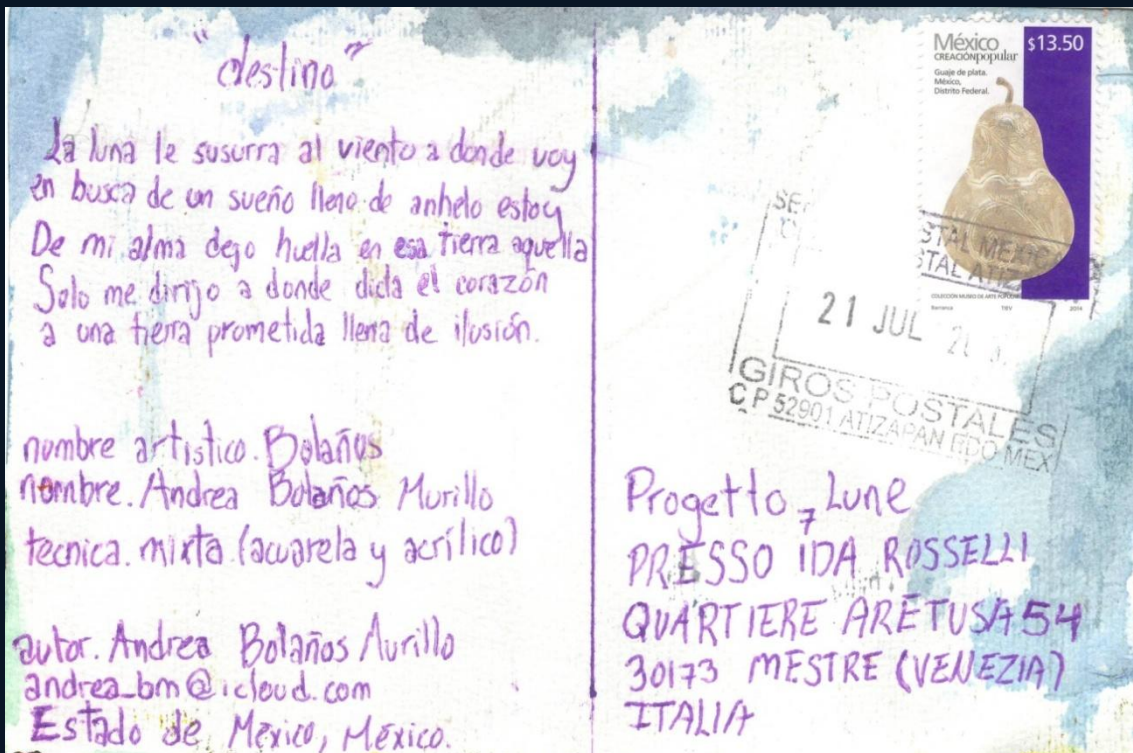 "destino"
La luna le susurra al viento a donde voy
en busca de un sueño lleno de anhelo estoy
De mi alma dejo huella en esa tierra aquella
Solo me dirijo a donde dicta el corazón
a una tierra prometida llena de ilusión.
nombre artistico. Bolaños
nombre. Andrea Bolaños Murillo
tecnica. mixta (acuarela y acrílico)
autor. Andrea Bolaños Murillo
andrea_bm@icloud.com
Estado de México, México.
México $13.50
CREACIÓNpopular
Guaje de plata.
México,
Distrito Federal.
COLECCIÓN MUSEO DE ARTE POPULAR
TIEV 2014
STAL MEXIC
STAL ATIZA
21 JUL
GIROS POSTALES
C P 52901 ATIZAPAN EDO MEX
Progetto 7 Lune
PRESSO IDA ROSSELLI
QUARTIERE ARETUSA 54
30173 MESTRE (VENEZIA)
ITALIA